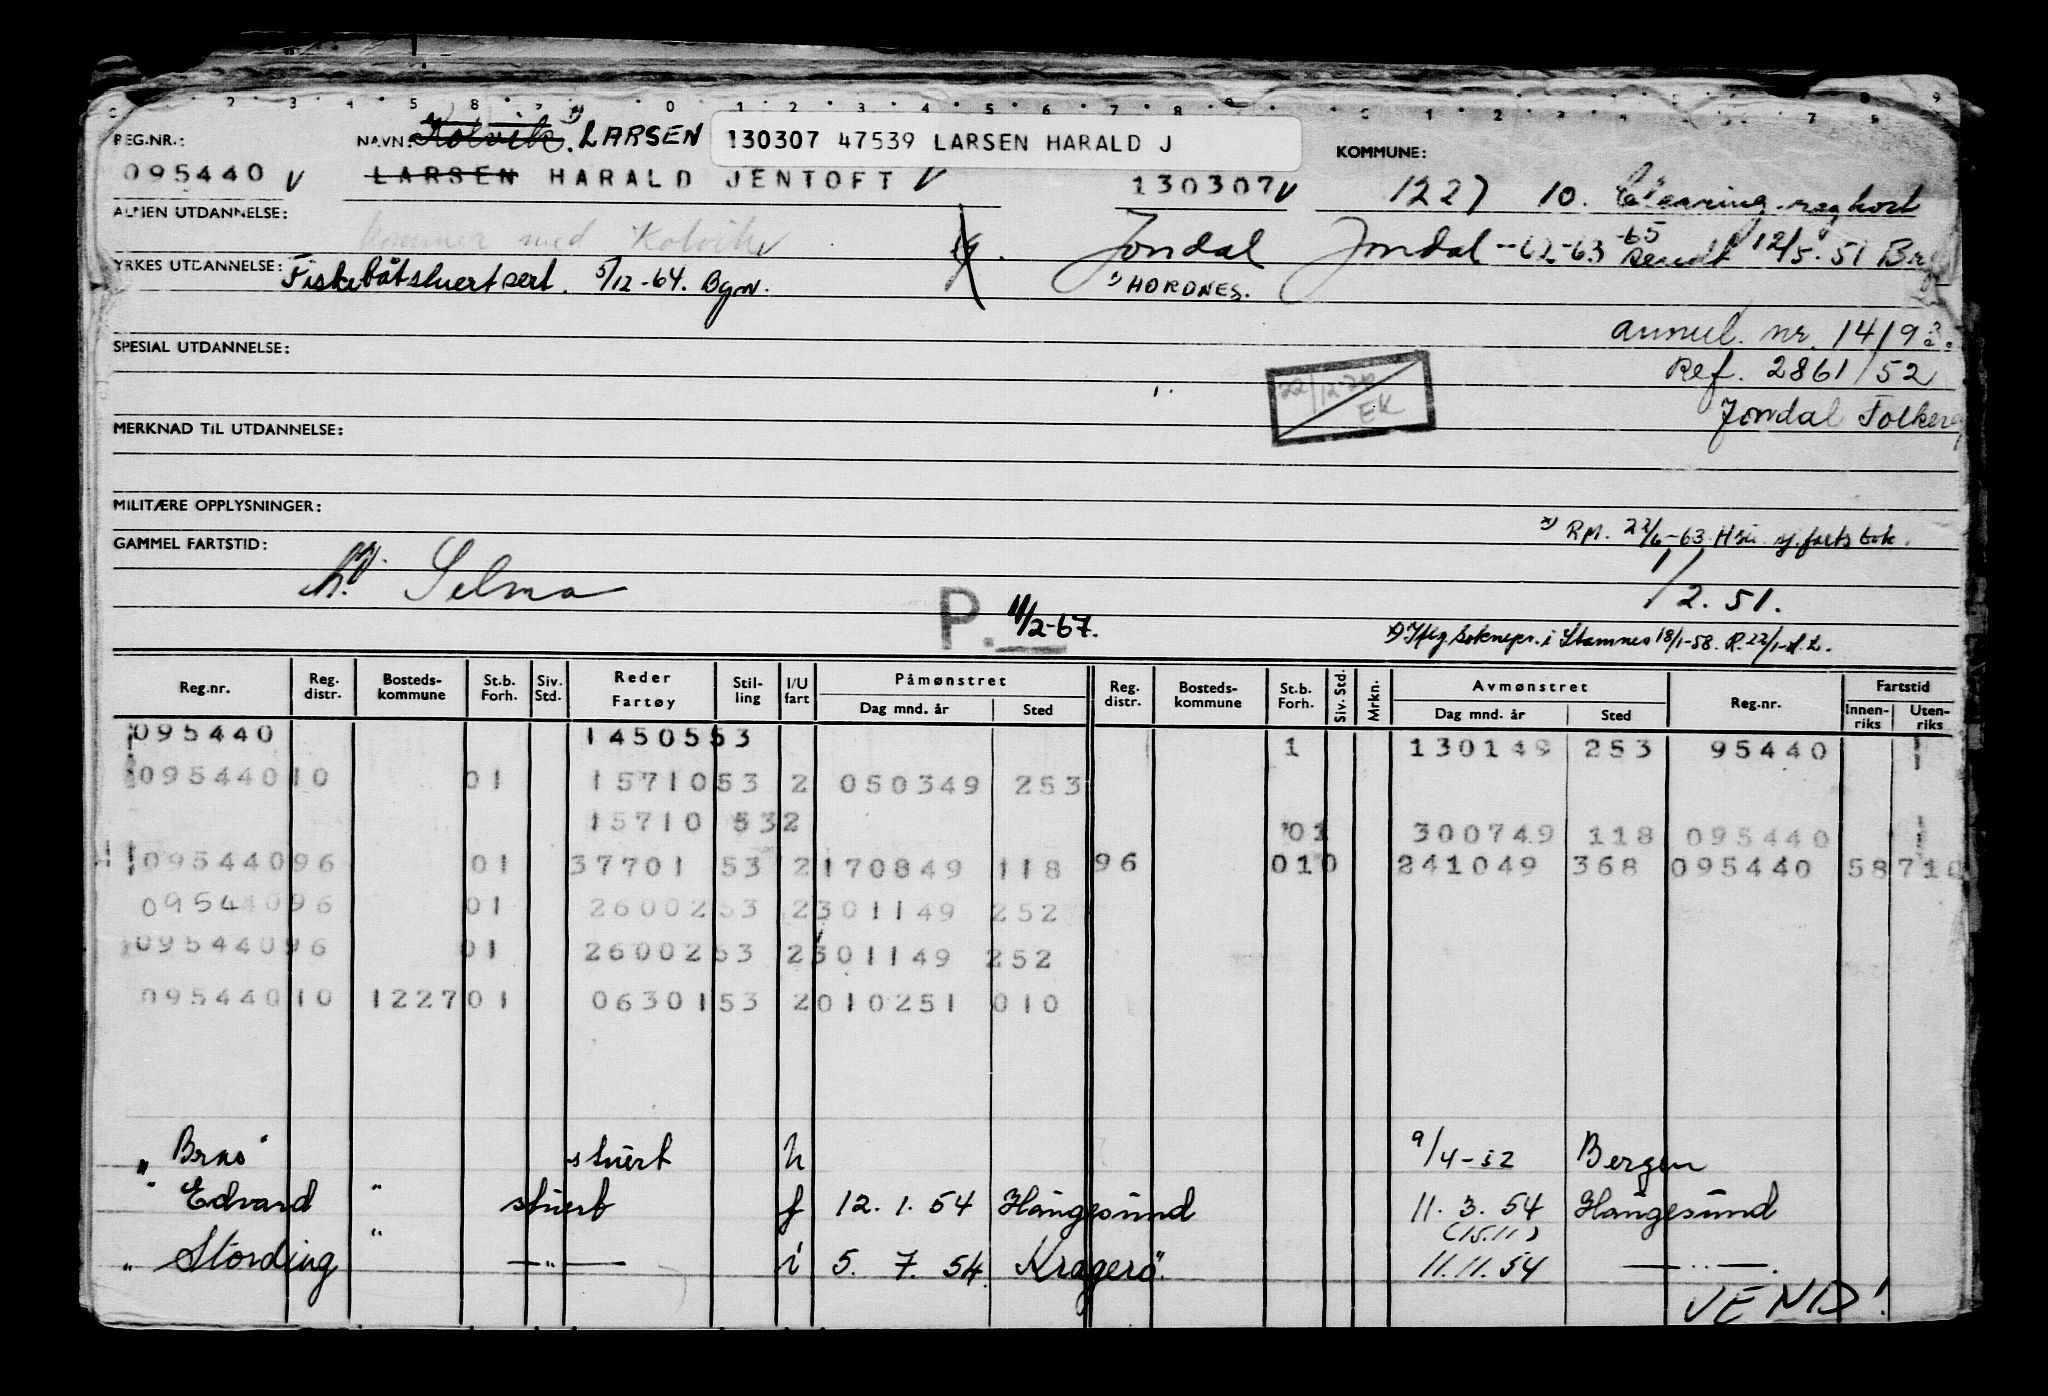 REG.NR.: NAVN: Kolvik. LARSEN 130307 47539 LARSEN HARALD J KOMMUNE:
095440 V LARSEN HARALD JENTOFT V 130307 V 1227 10. Clearing. reg kort
ALMEN UTDANNELSE: kommer med Kolvik Jondal Jondal -62-63 -65 Sendt 12/5. 51
YRKES UTDANNELSE: Fiskebåtstuertsert. 5/12-64. Bgn. HORDNES.
annul. nr. 14193.
SPESIAL UTDANNELSE: Ref. 2861/52
22/12-70 EK
Jondal Folkereg
MERKNAD TIL UTDANNELSE:
MILITÆRE OPPLYSNINGER: Rp. 22/6-63. sj.farts bok.
GAMMEL FARTSTID:
Selma 1/2. 51.
P. 11/2-67. i Stamnes 18/1-58. R. 22/1
Reg.nr. Reg. distr. Bosteds- kommune St.b. Forh. Siv. Std. Reder Fartøy Stil- ling I/U fart Påmønstret Dag mnd. år Sted Reg. distr. Bosteds- kommune St.b. Forh. Siv. Std. Mrkn. Avmønstret Dag mnd. år Sted Reg.nr. Fartstid Innen- riks Uten- riks
095440 1450553 1 130149 253 95440
09544010 01 1571053 2 050349 253
15710 532 01 300749 118 095440
09544096 01 37701 53 2170849 118 96 010 241049 368 095440 58710
09544096 01 2600253 2301149 252
09544096 01 2600253 2301149 252
09544010 122701 0630153 2010251 010
" stuert 9/4-52 Bergen
" Edvard " stuert f 12. 1. 54 Haugesund 11. 3. 54 Haugesund
(15.11)
" Stording " —"— i 5. 7. 54 Kragerö. 11.11.54 —"—.
VEND!